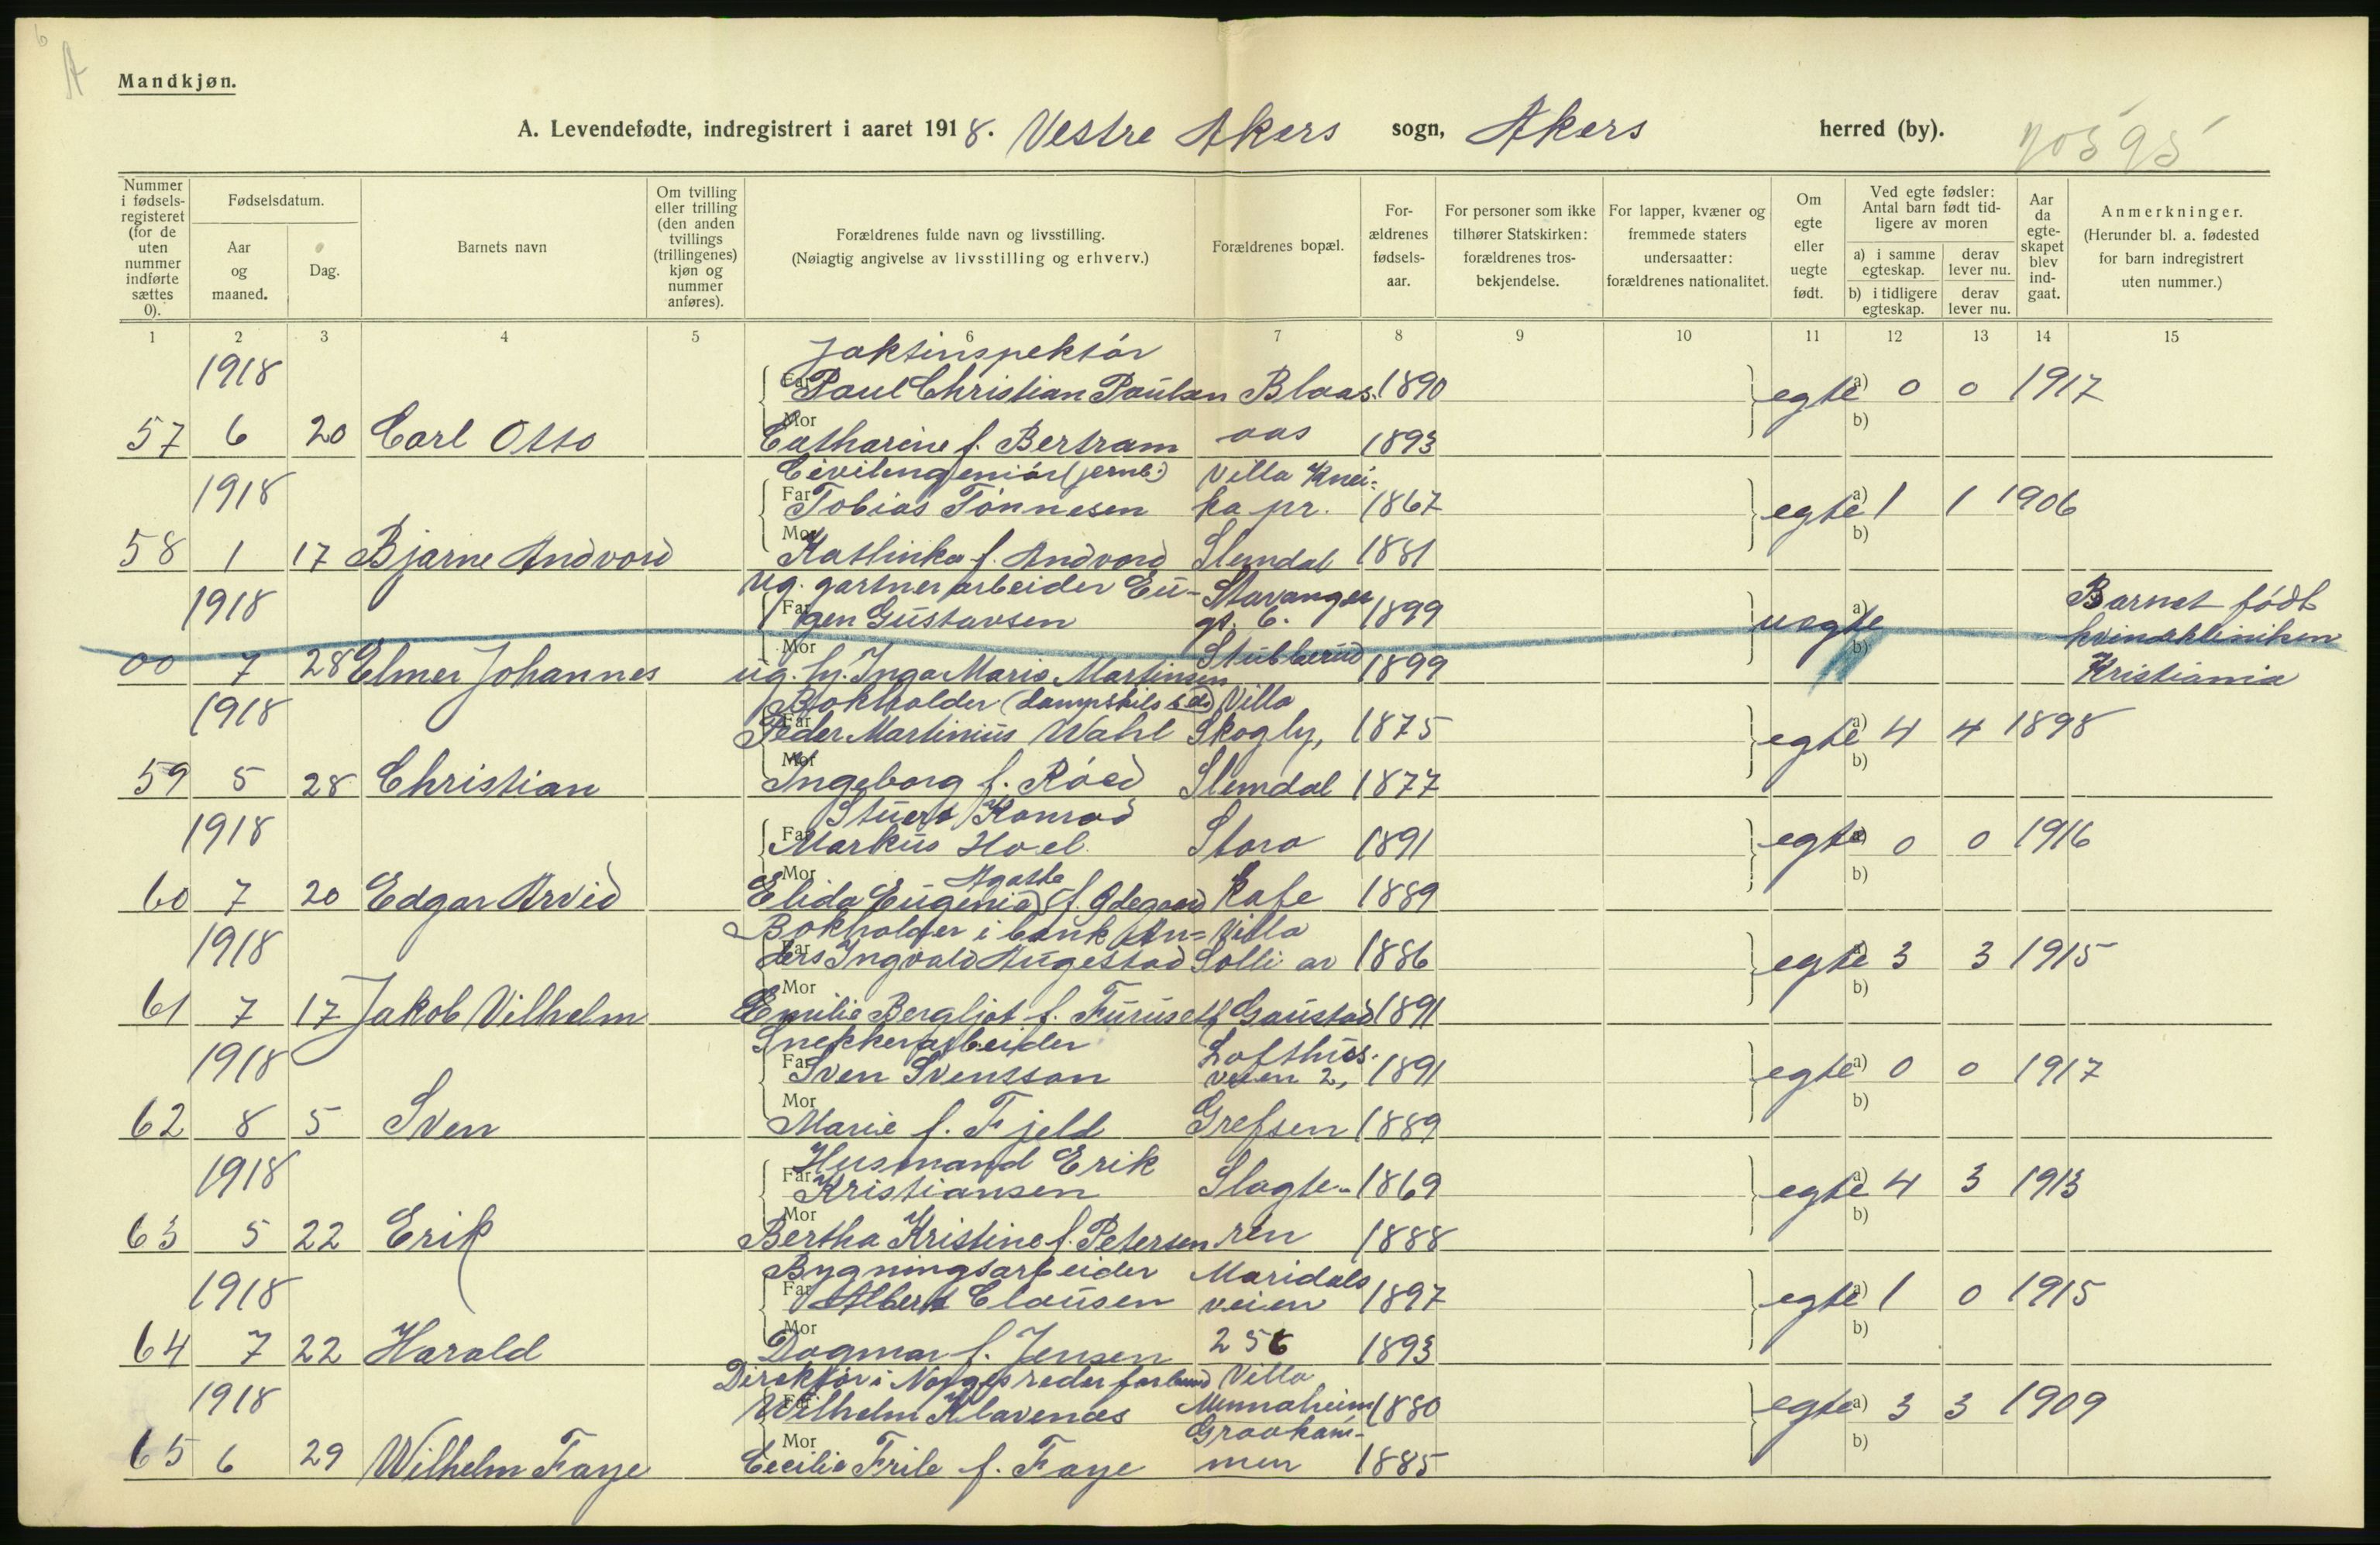 Mandkjøn.
A. Levendefødte, indregistrert i aaret 1918. Vestre Akers sogn, Akers herred (by).
Nummer i fødselsregisteret (for de uten nummer indførte sættes 0).
Fødselsdatum.
Aar og maaned.
Dag.
Barnets navn
Om tvilling eller trilling (den anden tvillings (trillingenes) kjøn og nummer anføres).
Forældrenes fulde navn og livsstilling.
(Nøiagtig angivelse av livsstilling og erhverv.)
Forældrenes bopæl.
Forældrenes fødselsaar.
For personer som ikke tilhører Statskirken: forældrenes trosbekjendelse.
For lapper, kvæner og fremmede staters undersaatter: forældrenes nationalitet.
Om egte eller uegte født.
Ved egte fødsler: Antal barn født tidligere av moren
a) i samme egteskap. derav lever nu.
b) i tidligere egteskap. derav lever nu.
Aar da egteskapet blev indgaat.
Anmerkninger.
(Herunder bl. a. fødested for barn indregistrert uten nummer.)
1 2 3 4 5 6 7 8 9 10 11 12 13 14 15
Jaktinspektør
1918 Far Paul Christian Paulsen Blaas- 1890 egte a) 0 0 1917
57 6 20 Carl Otto Mor Catharine f. Bertram aas 1893 b)
Civilingeniør (jernb.) Villa Knei-
1918 Far Tobias Tønnesen ka pr. 1867 egte a) 1 1 1906
58 1 17 Bjarne Andvord Mor Kathinka f. Andvord Slemdal 1881 b)
ug. gartnerarbeider Eu- Stavanger
1918 Far gen Gustavsen gt. 6. 1899 uegte a) Barnet født
00 7 28 Elmer Johannes Mor ug. hj. Inga Marie Martinsen Stubberud 1899 b) kvindekliniken Kristiania
Bokholder Villa
1918 Far Peder Martinius Wahl Skogly, 1875 egte a) 4 4 1898
59 5 28 Christian Mor Ingeborg f. Røed Slemdal 1877 b)
Stuert Konrad
1918 Far Markus Hoel Stara 1891 egte a) 0 0 1916
60 7 20 Edgar Arvid Mor Elida Eugenie Agathe f. Ødegaard Kafe 1889 b)
Bokholder i bank An- Villa
1918 Far ders Ingvald Augestad Solli av 1886 egte a) 3 3 1915
61 7 17 Jakob Vilhelm Mor Emilie Bergljot f. Furuseth Gaustad 1891 b)
Snekkerarbeider Lofthus-
1918 Far Sven Svensson veien 2, 1891 egte a) 0 0 1917
62 8 5 Sven Mor Marie f. Fjeld Grefsen 1889 b)
Husmand Erik
1918 Far Kristiansen Slagte- 1869 egte a) 4 3 1913
63 5 22 Erik Mor Bertha Kristine f. Petersen ren 1888 b)
Bygningsarbeider Maridals
1918 Far Albert Clausen veien 1897 egte a) 1 0 1915
64 7 22 Harald Mor Dagmar f. Jensen 256 1893 b)
Direktør i Norges rederforbund Villa
1918 Far Wilhelm Klavenæs Munnaheim 1880 egte a) 3 3 1909
Graakam-
65 6 29 Wilhelm Faye Mor Cecilie Frile f. Faye men 1885 b)